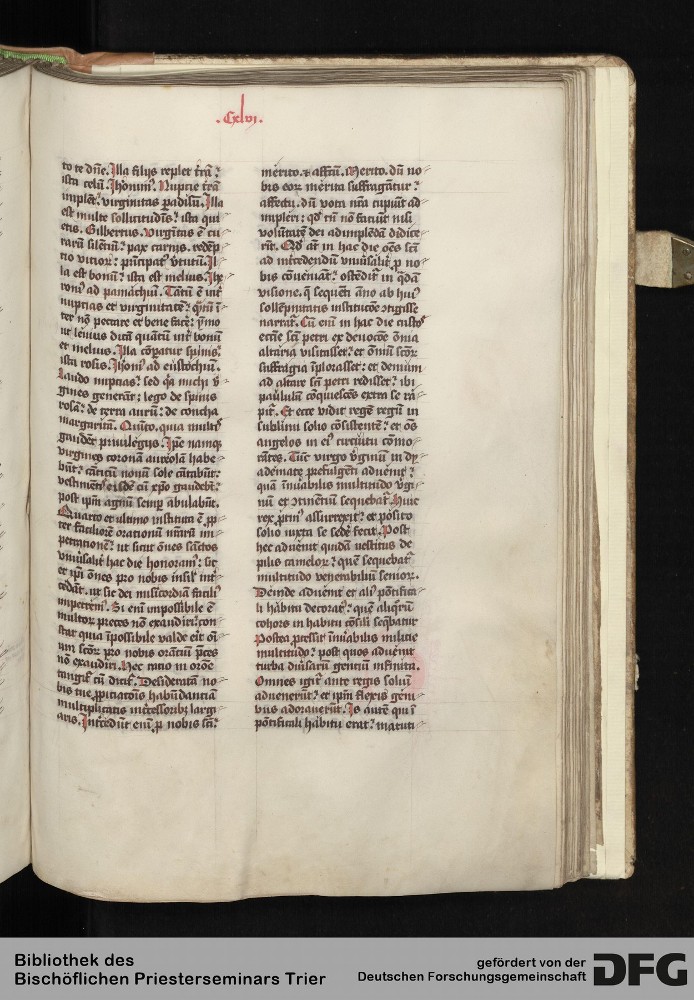 .Cxlvi.
to te dn̄e. Illa filijs replet t̄rā:
ista celū. Jh̓onim9. Nupcie t̄rā
implēt: virginitas ꝑadisū. Illa
est multe sollicitudīs: ista qui
etis. Gilbertus. Virgītas ē cu
rarū silēciū: pax carnis. redēp
tio vicior̄: prīncipat9 v̓tutū. Il
la est bonū: ista est melius. Jh̓e
roni9 ad pamachiū. Tātū ē int̓
nuptias et virginitatē: qͣntū ī
ter nō peccare et bene fac̓e: ymo
ut lenius dicā quātū int̓ bonū
et melius. Illa cōpatur spinis:
ista rosis. Jh̓oni9 ad eustochiū.
Laudo nuptias: sed qͣ michi v̓
gines generāt: lego de spinis
rosā: de terra aurū: de concha
margaritā. Quīto. quia multis
gaudēt priuilegijs. Ip̄e namqꝫ
virgines coronā aureolā habe
būt: cāticū nouū sole cātabūt:
vestimentis eisdē cū xp̄o gaudebt̄:
post ip̄m agnū semꝑ ābulabūt.
Quarto et ultimo instituta ē ꝓp
ter faciliorē orationū nr̄arū im
petrationē: ut sicut om̄es sāctos
vniu̓salit̓ hac die honoram9: sic
et ip̄i om̄es pro nobis insil̓ int̓
cedāt. ut sic dei mīcordiā facili9
impetrem9. Si enī impossibile ē
multor̄ preces nō exaudiri: con
stat quia īpossibile valde erit oīm
scōr̄ pro nobis orātiū p̄ces
nō exaudiri. Hec ratio in orōe
tangit̓ cū dicit̓. Desideratā no
bis tue ꝓpiciatōis habūdantiā
multiplicatis int̓cessoribꝫ largi
aris. Int̓cedūt enī ꝓ nobis sc̄i:
merito. et affcū. Merito. dū no
bis eor̄ merita suffragātur:
affectu. dū vota nr̄a cupiūt ad
impleri: qd̓ tn̄ nō faciūt nisi
volūtatē dei adimplēdā didice
rīt. Qd̓ āt in hac die om̄s sc̄i
ad int̓cedendū vniu̓salit̓ ꝓ no
bis cōueniāt: ostēdit̓ in qͣdā
visione. q̄ sequēti āno ab hui9
sollēpnitatis institucōe ꝯtigisse
narrat̓. Cū enī in hac die custos
ecc̄ie sc̄i petri ex deuocōe om̄ia
altaria visitasset: et om̄iū scōr̄
suffragia īplorasset: et demum
ad altare sc̄i petri redisset: ibi
paululū cōquiescēs extra se ra
pit̓. Et ecce vidit regē regū in
sublimi solio cōsistentē: et oēs
angelos in ei9 circuitu cōmo
rātes. Tūc virgo v̓ginū in dy
ademate p̄fulgēti aduenit:
quā īnūabilis multitudo v̓gi
nū et ꝯtinētiū sequebat̓. Huic
rex ꝓtin9 assurrexit: et posito
solio iuxta se sed̓e fecit. Post
hec aduenit quidā vestitus de
pilis camelor̄: quē sequebat̓
multitudo venerabiliū senior̄.
Deinde aduenit et ali9 pōtifica
li habitu decorat9: quē aliqͣr̄ū
cohors in habitu cōsīli seq̄batur
Postea p̄cessit īnūabilis militie
multitudo: post quos aduenit
turba diu̓sarū gentiū infinita.
Omnes igit̓ ante regis soliū
aduenerūt: et ip̄m flexis geni
bus adorauerūt. Is autē qui ī
pōtificali habitu erat: matuti
Bibliothek des
Bischöflichen Priesterseminars Trier
gefördert von der
Deutschen Forschungsgemeinschaft
DFG